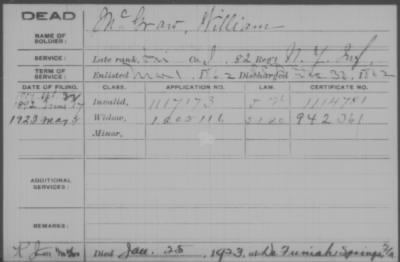 DEAD
NAME OF SOLDIER: McGraw, William
SERVICE: Late rank, Co. I, 82 Reg't N.Y. Inf.
TERM OF SERVICE: Enlisted 1862 Discharged 1862
DATE OF FILING. CLASS. APPLICATION NO. LAW. CERTIFICATE NO.
1892 Invalid, 1117173 1114781
1923 May 5 Widow, 1205116 942361
Minor,
ADDITIONAL SERVICES:
REMARKS:
Died Jan. 25, 1923, at De Funiak Springs,